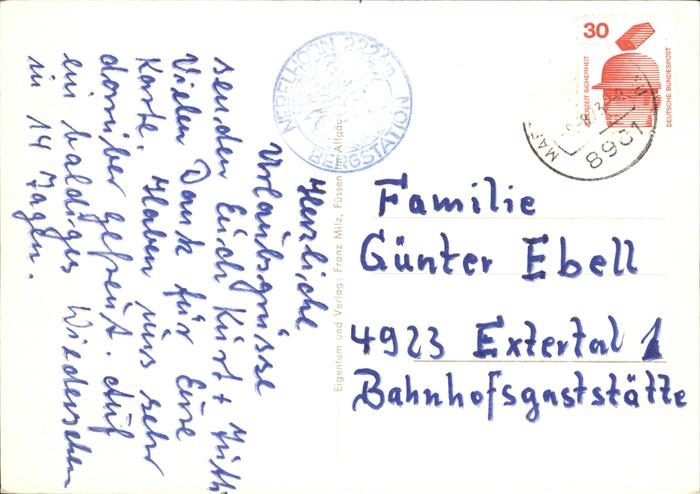 Herzliche
Urlaubsgrüsse
senden Euch Kurt +
Vielen Dank für Eure
Karte. Haben uns sehr
darüber gefreut. Auf
ein baldiges Wiedersehen
in 14 Tagen.
NEBELHORN 2224m
BERGSTATION
Eigentum und Verlag: Franz Milz, Füssen im Allgäu
30
JEDERZEIT SICHERHEIT
DEUTSCHE BUNDESPOST
8961
Familie
Günter Ebell
4923 Extertal 1
Bahnhofsgaststätte